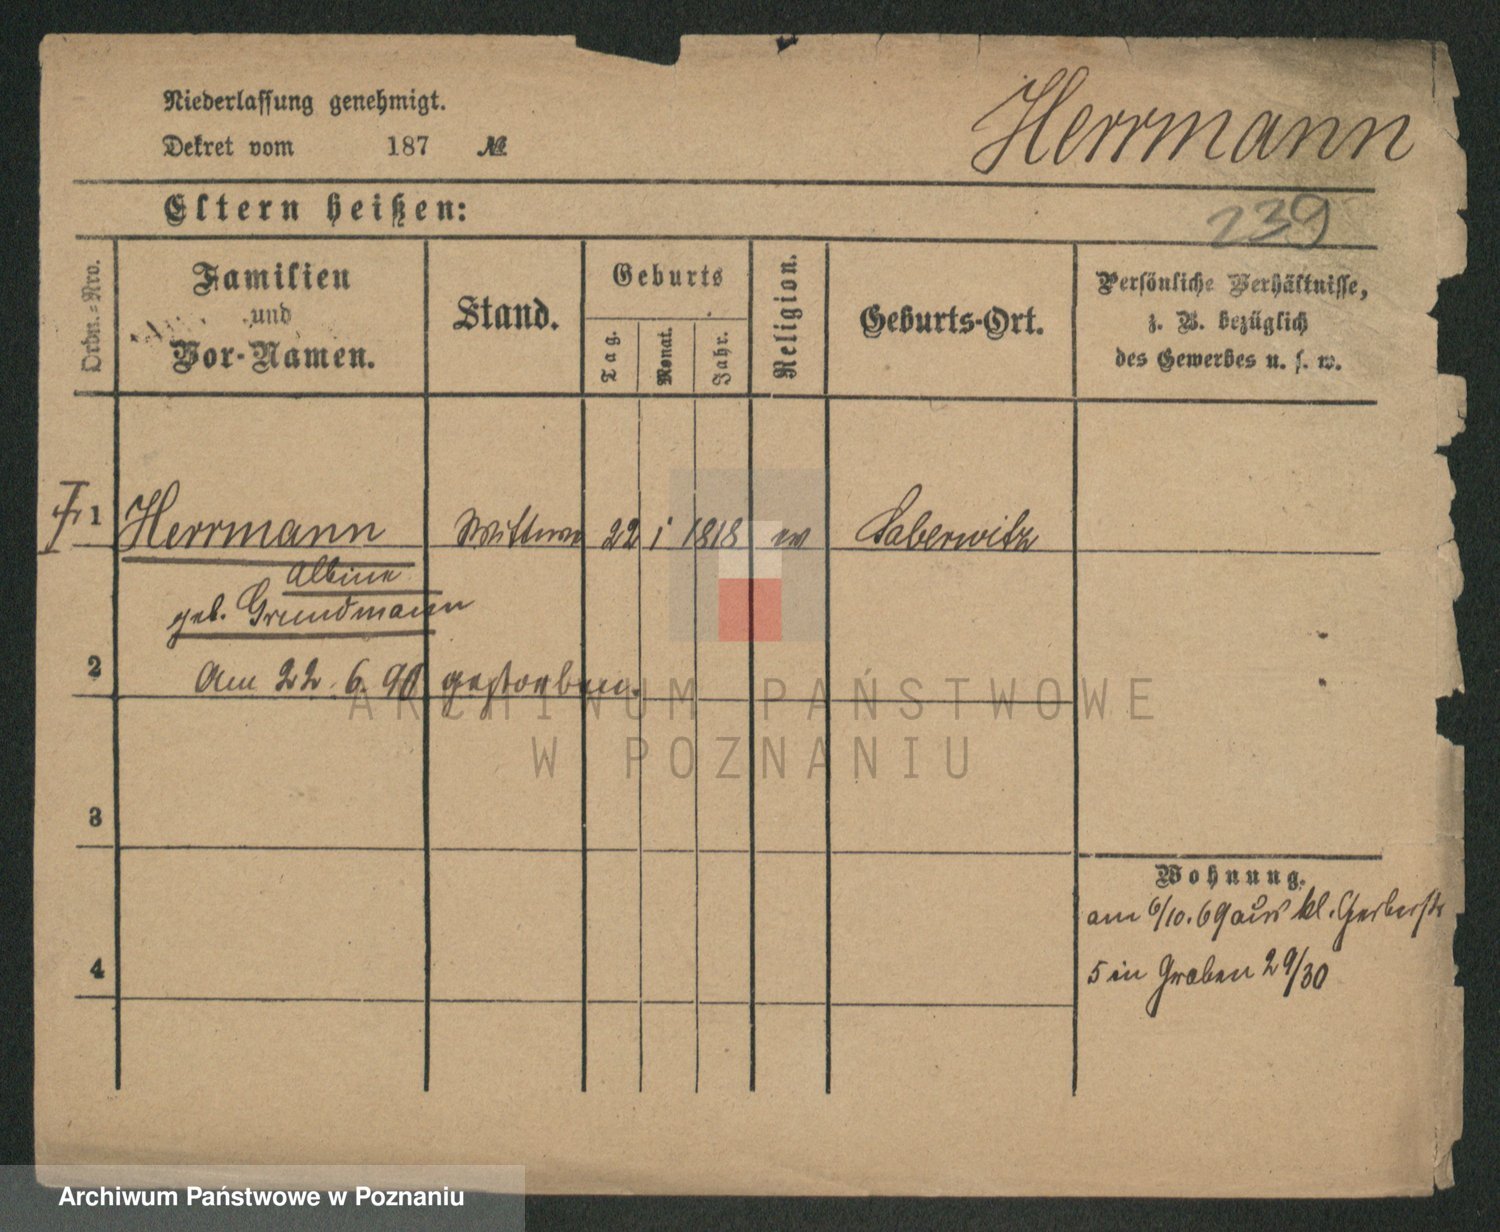 Niederlassung genehmigt.
Dekret vom 187 №
Herrmann
239
Eltern heißen:
Ordn.-Nro.
Familien
und
Vor-Namen.
Stand.
Geburts
Tag.
Monat.
Jahr.
Religion.
Geburts-Ort.
Persönliche Verhältnisse,
z. B. bezüglich
des Gewerbes u. s. w.
1 Herrmann Wittwe 22 1 1818 ev Saberwitz
Albine
geb. Grundmann
2
Am 22. 6. 90 gestorben.
3
4
Wohnung.
am 6/10. 69 aus kl. Gerberstr
5 in Graben 29/30
ARCHIWUM PAŃSTWOWE
W POZNANIU
Archiwum Państwowe w Poznaniu